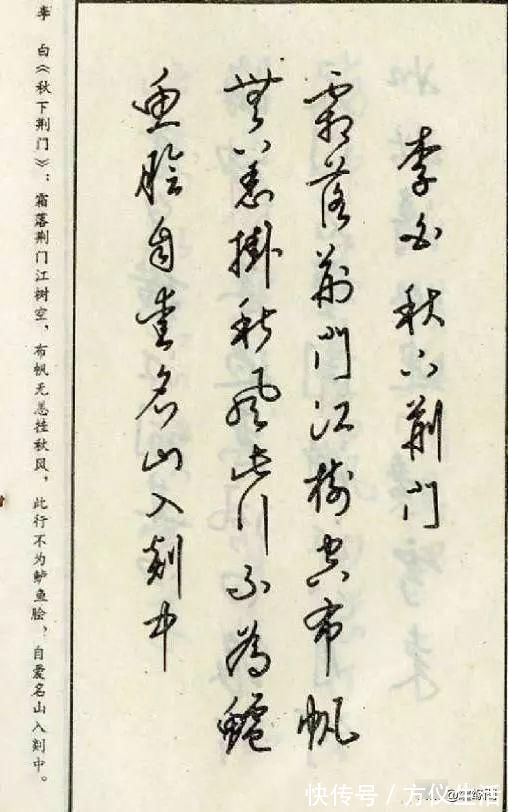 李白秋下荆門
霜落荆門江樹空布帆
無恙掛秋風此行不為鱸
魚膾自愛名山入剡中
李 白《秋下荆门》：霜落荆门江树空，布帆无恙挂秋风，此行不为鲈鱼脍，自爱名山入剡中。
快传号／方仪生活